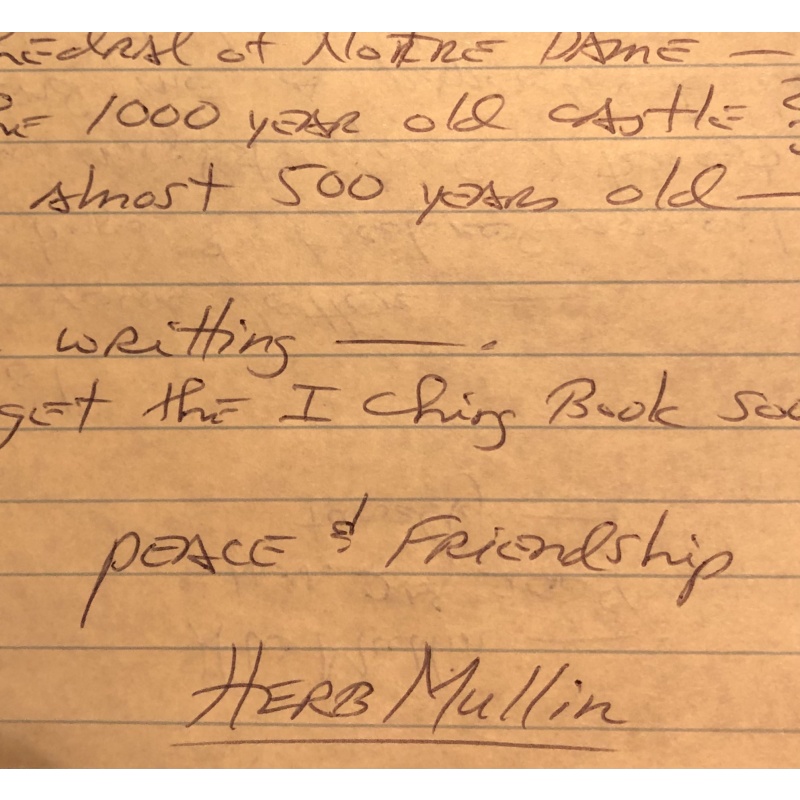 hedral of Notre Dame —
he 1000 year old castle ?
almost 500 years old —
writting — .
get the I Ching Book soo
peace & Friendship
Herb Mullin